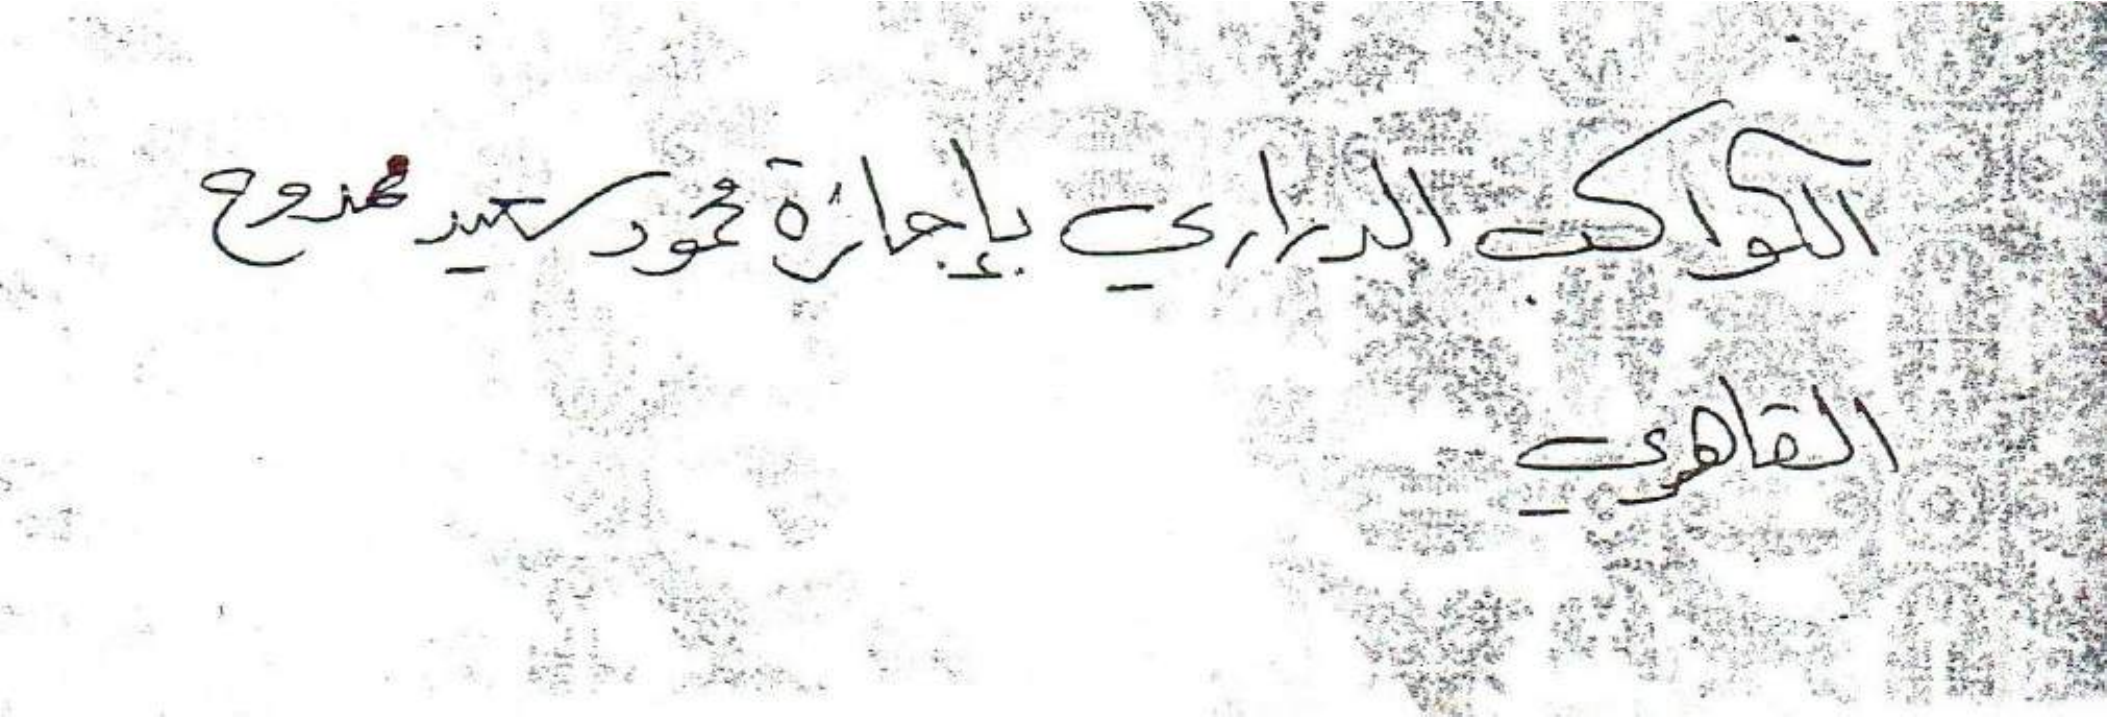 الكواكب الدراري بإجازة محمود سعيد ممدوح
القاهري